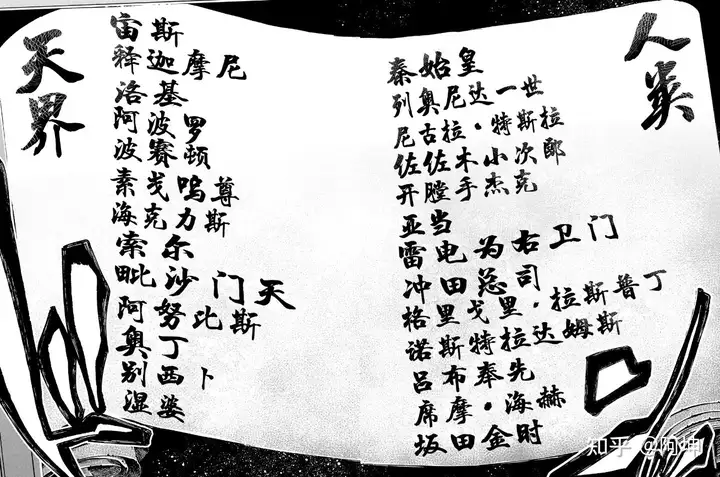 天界
宙斯
释迦摩尼
洛基
阿波罗
波赛顿
素戋呜尊
海克力斯
索尔
毗沙门天
阿努比斯
奥丁
别西卜
湿婆
人类
秦始皇
列奥尼达一世
尼古拉·特斯拉
佐佐木小次郎
开膛手杰克
亚当
雷电为右卫门
冲田总司
格里戈里·拉斯普丁
诺斯特拉达姆斯
吕布奉先
席摩·海赫
坂田金时
知乎 @阿坤